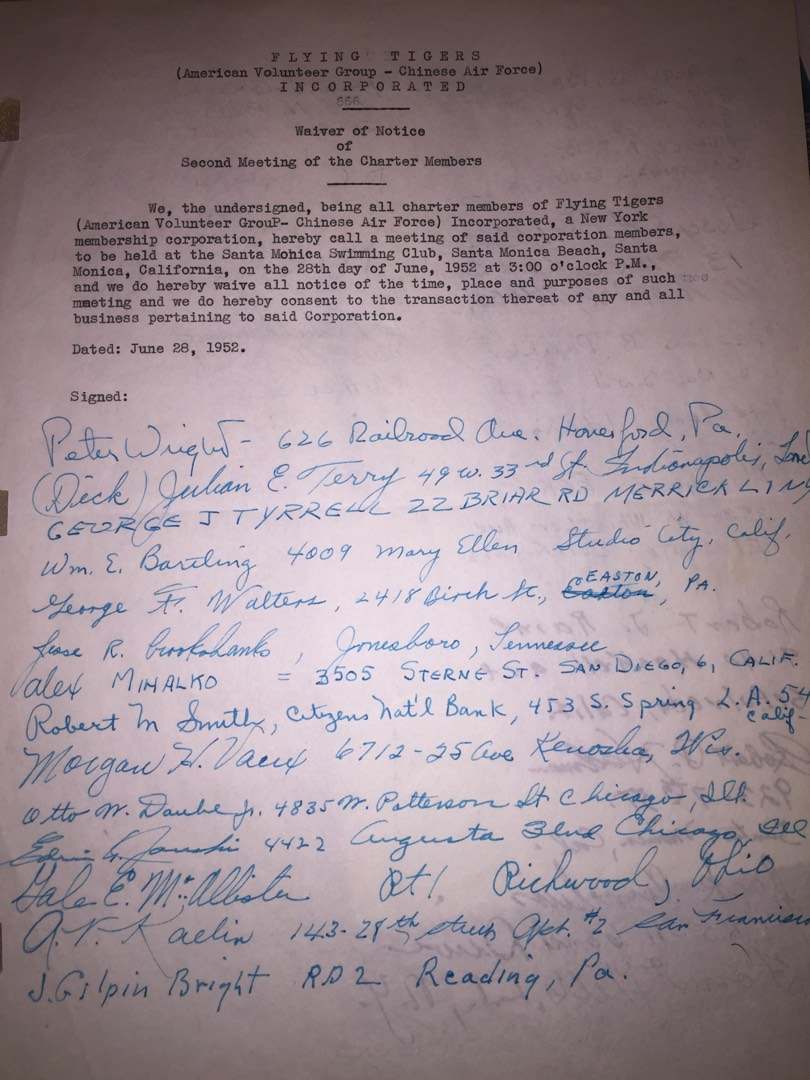 FLYING TIGERS
(American Volunteer Group - Chinese Air Force)
INCORPORATED
Waiver of Notice
of
Second Meeting of the Charter Members
We, the undersigned, being all charter members of Flying Tigers
(American Volunteer GrouP- Chinese Air Force) Incorporated, a New York
membership corporation, hereby call a meeting of said corporation members,
to be held at the Santa Mohica Swimming Club, Santa Monica Beach, Santa
Monica, California, on the 28th day of June, 1952 at 3:00 o'clock P.M.,
and we do hereby waive all notice of the time, place and purposes of such
mmeting and we do hereby consent to the transaction thereat of any and all
business pertaining to said Corporation.
Dated: June 28, 1952.
Signed:
Peter Wright - 626 Railroad Ave. Haverford, Pa.
(Dick) Julian E. Terry 49 W. 33rd St. Indianapolis, Ind
GEORGE J TYRRELL 22 BRIAR RD MERRICK L I NY
Wm. E. Bartling 4009 Mary Ellen Studio City, Calif.
George F. Walters, 2418 Birch St., EASTON, PA.
Jesse R. Crookshanks, Jonesboro, Tennessee
Alex MIHALKO = 3505 STERNE ST. SAN DIEGO, 6, CALIF.
Robert M Smith, Citizens Nat'l Bank, 453 S. Spring L.A. 54
Calif-
Morgan H. Vaux 6712-25 Ave Kenosha, Wis.
Otto W. Daube Jr. 4835 W. Patterson St Chicago, Ill.
4422 Augusta Blvd Chicago, Ill
Gale E. McAllister Rt 1 Richwood, Ohio
A.V. Kaelin 143-28th street Apt. #2 San Francisco
J. Gilpin Bright RD2 Reading, Pa.